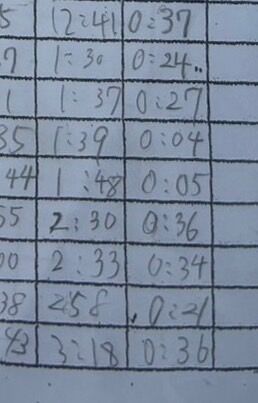 5 12:41 0:37
7 1:30 0:24..
1 1:37 0:27
35 1:39 0:04
44 1:48 0:05
55 2:30 0:36
00 2:33 0:34
38 2:58 0:21
43 3:18 0:36